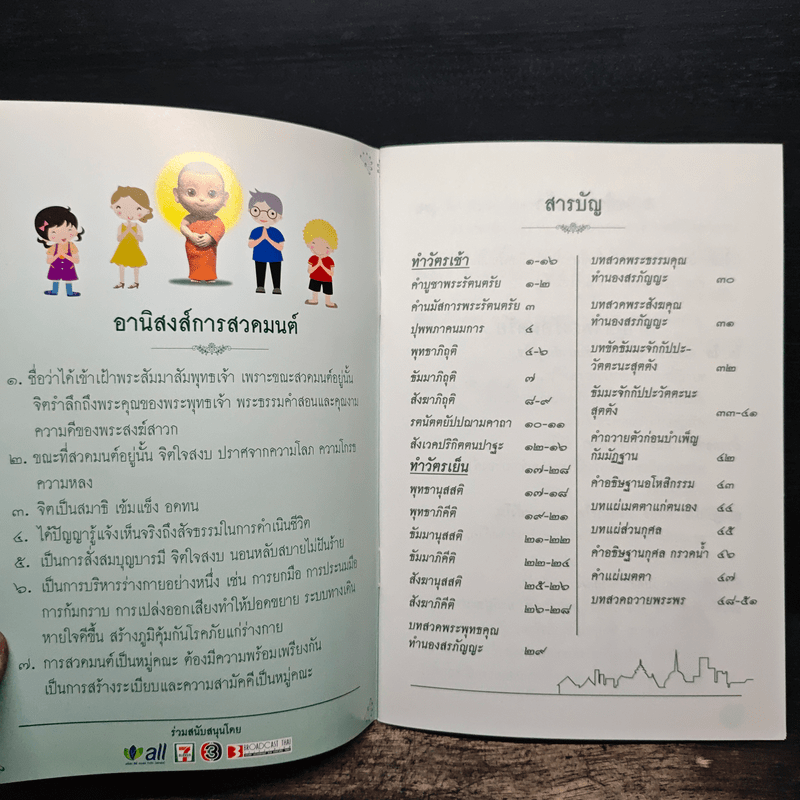 อานิสงส์การสวดมนต์
๑. ชื่อว่าได้เข้าเฝ้าพระสัมมาสัมพุทธเจ้า เพราะขณะสวดมนต์อยู่นั้น
จิตรำลึกถึงพระคุณของพระพุทธเจ้า พระธรรมคำสอนและคุณงาม
ความดีของพระสงฆ์สาวก
๒. ขณะที่สวดมนต์อยู่นั้น จิตใจสงบ ปราศจากความโลภ ความโกรธ
ความหลง
๓. จิตเป็นสมาธิ เข้มแข็ง อดทน
๔. ได้ปัญญารู้แจ้งเห็นจริงถึงสัจธรรมในการดำเนินชีวิต
๕. เป็นการสั่งสมบุญบารมี จิตใจสงบ นอนหลับสบายไม่ฝันร้าย
๖. เป็นการบริหารร่างกายอย่างหนึ่ง เช่น การยกมือ การประนมมือ
การก้มกราบ การเปล่งออกเสียงทำให้ปอดขยาย ระบบทางเดิน
หายใจดีขึ้น สร้างภูมิคุ้มกันโรคภัยแก่ร่างกาย
๗. การสวดมนต์เป็นหมู่คณะ ต้องมีความพร้อมเพรียงกัน
เป็นการสร้างระเบียบและความสามัคคีเป็นหมู่คณะ
ร่วมสนับสนุนโดย
all
7 ELEVEN
3
BROADCAST THAI
สารบัญ
ทำวัตรเช้า ๑-๑๖
คำบูชาพระรัตนตรัย ๑-๒
คำนมัสการพระรัตนตรัย ๓
ปุพพภาคนมการ ๔
พุทธาภิถุติ ๔-๖
ธัมมาภิถุติ ๗
สังฆาภิถุติ ๘-๙
รตนัตตยัปปณามคาถา ๑๐-๑๑
สังเวคปริกิตตนปาฐะ ๑๒-๑๖
ทำวัตรเย็น ๑๗-๒๘
พุทธานุสสติ ๑๗-๑๘
พุทธาภิคีติ ๑๙-๒๑
ธัมมานุสสติ ๒๑-๒๒
ธัมมาภิคีติ ๒๒-๒๔
สังฆานุสสติ ๒๕-๒๖
สังฆาภิคีติ ๒๖-๒๘
บทสวดพระพุทธคุณ
ทำนองสรภัญญะ ๒๙
บทสวดพระธรรมคุณ
ทำนองสรภัญญะ ๓๐
บทสวดพระสังฆคุณ
ทำนองสรภัญญะ ๓๑
บทขัดธัมมะจักกัปปะ-
วัตตะนะสุตตัง ๓๒
ธัมมะจักกัปปะวัตตะนะ
สุตตัง ๓๓-๔๑
คำถวายตัวก่อนบำเพ็ญ
กัมมัฏฐาน ๔๒
คำอธิษฐานอโหสิกรรม ๔๓
บทแผ่เมตตาแก่ตนเอง ๔๔
บทแผ่ส่วนกุศล ๔๕
คำอธิษฐานกุศล กรวดน้ำ ๔๖
คำแผ่เมตตา ๔๗
บทสวดถวายพระพร ๔๘-๕๑